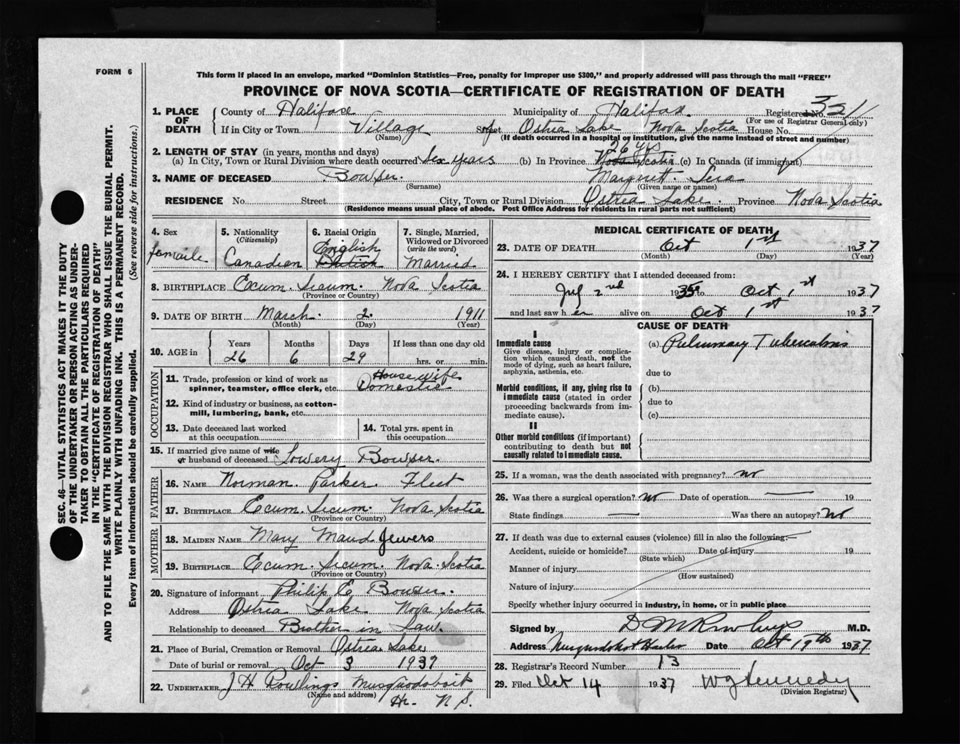 FORM 6
This form if placed in an envelope, marked "Dominion Statistics—Free, penalty for improper use $300," and properly addressed will pass through the mail "FREE"
PROVINCE OF NOVA SCOTIA—CERTIFICATE OF REGISTRATION OF DEATH
1. PLACE OF DEATH County of Halifax Municipality of Halifax Registered No. 331
(For use of Registrar General only)
If in City or Town Village (Name) Street Ostrea Lake Nova Scotia House No.
(If death occurred in a hospital or institution, give the name instead of street and number)
2. LENGTH OF STAY (in years, months and days) 26 yrs
(a) In City, Town or Rural Division where death occurred Six Years (b) In Province Nova Scotia (c) In Canada (if immigrant)
3. NAME OF DECEASED Bowser. Margrett
(Surname) (Given name or names)
RESIDENCE No. Street City, Town or Rural Division Ostrea Lake. Province Nova Scotia
(Residence means usual place of abode. Post Office Address for residents in rural parts not sufficient)
4. Sex femaile
5. Nationality (Citizenship) Canadian
6. Racial Origin English British
7. Single, Married, Widowed or Divorced (write the word) Married
8. BIRTHPLACE Ecum. Secum. Nova Scotia
(Province or Country)
9. DATE OF BIRTH March. 2. 1911
(Month) (Day) (Year)
10. AGE in Years Months Days If less than one day old
26 6 29 hrs. or min.
OCCUPATION
11. Trade, profession or kind of work as spinner, teamster, office clerk, etc. House wife Domestic
12. Kind of industry or business, as cotton-mill, lumbering, bank, etc.
13. Date deceased last worked at this occupation
14. Total yrs. spent in this occupation
15. If married give name of wife or husband of deceased Lowery Bowser.
FATHER
16. Name Norman Parker Fleet
17. Birthplace Ecum. Secum. Nova Scotia
(Province or Country)
MOTHER
18. MAIDEN NAME Mary Maud Jewers
19. BIRTHPLACE Ecum. Secum. Nova Scotia
(Province or Country)
20. Signature of informant Philip E Bowser.
Address Ostrea Lake Nova Scotia
Relationship to deceased Brother in Law
21. Place of Burial, Cremation or Removal Ostrea Lake
Date of burial or removal Oct 3 1937
22. UNDERTAKER J H Rowlings Musquodoboit
(Name and address)
Hr. N S.
MEDICAL CERTIFICATE OF DEATH
23. DATE OF DEATH Oct 1st 1937
(Month) (Day) (Year)
24. I HEREBY CERTIFY that I attended deceased from:
July 2nd 1935 to Oct 1st 1937
and last saw her alive on Oct 1st 1937
CAUSE OF DEATH
I
Immediate cause
Give disease, injury or complication which caused death, not the mode of dying, such as heart failure, asphyxia, asthenia, etc.
(a) Pulmonary Tuberculosis
due to
Morbid conditions, if any, giving rise to immediate cause (stated in order proceeding backwards from immediate cause).
(b)
due to
(c)
II
Other morbid conditions (if important) contributing to death but not causally related to immediate cause.
25. If a woman, was the death associated with pregnancy? no
26. Was there a surgical operation? no Date of operation — 19
State findings — Was there an autopsy? no
27. If death was due to external causes (violence) fill in also the following:—
Accident, suicide or homicide? Date of injury 19
(State which)
Manner of injury
(How sustained)
Nature of injury
Specify whether injury occurred in industry, in home, or in public place
Signed by M.D.
Address Musquodoboit Harbor Date Oct 19th 1937
28. Registrar's Record Number 13
29. Filed Oct 14 1937 W J Kennedy
(Division Registrar)
SEC. 46—VITAL STATISTICS ACT MAKES IT THE DUTY
OF THE UNDERTAKER OR PERSON ACTING AS UNDER-
TAKER TO OBTAIN ALL THE PARTICULARS REQUIRED
IN THE "CERTIFICATE OF REGISTRATION OF DEATH"
AND TO FILE THE SAME WITH THE DIVISION REGISTRAR WHO SHALL ISSUE THE BURIAL PERMIT.
WRITE PLAINLY WITH UNFADING INK. THIS IS A PERMANENT RECORD.
Every item of information should be carefully supplied. (See reverse side for instructions.)